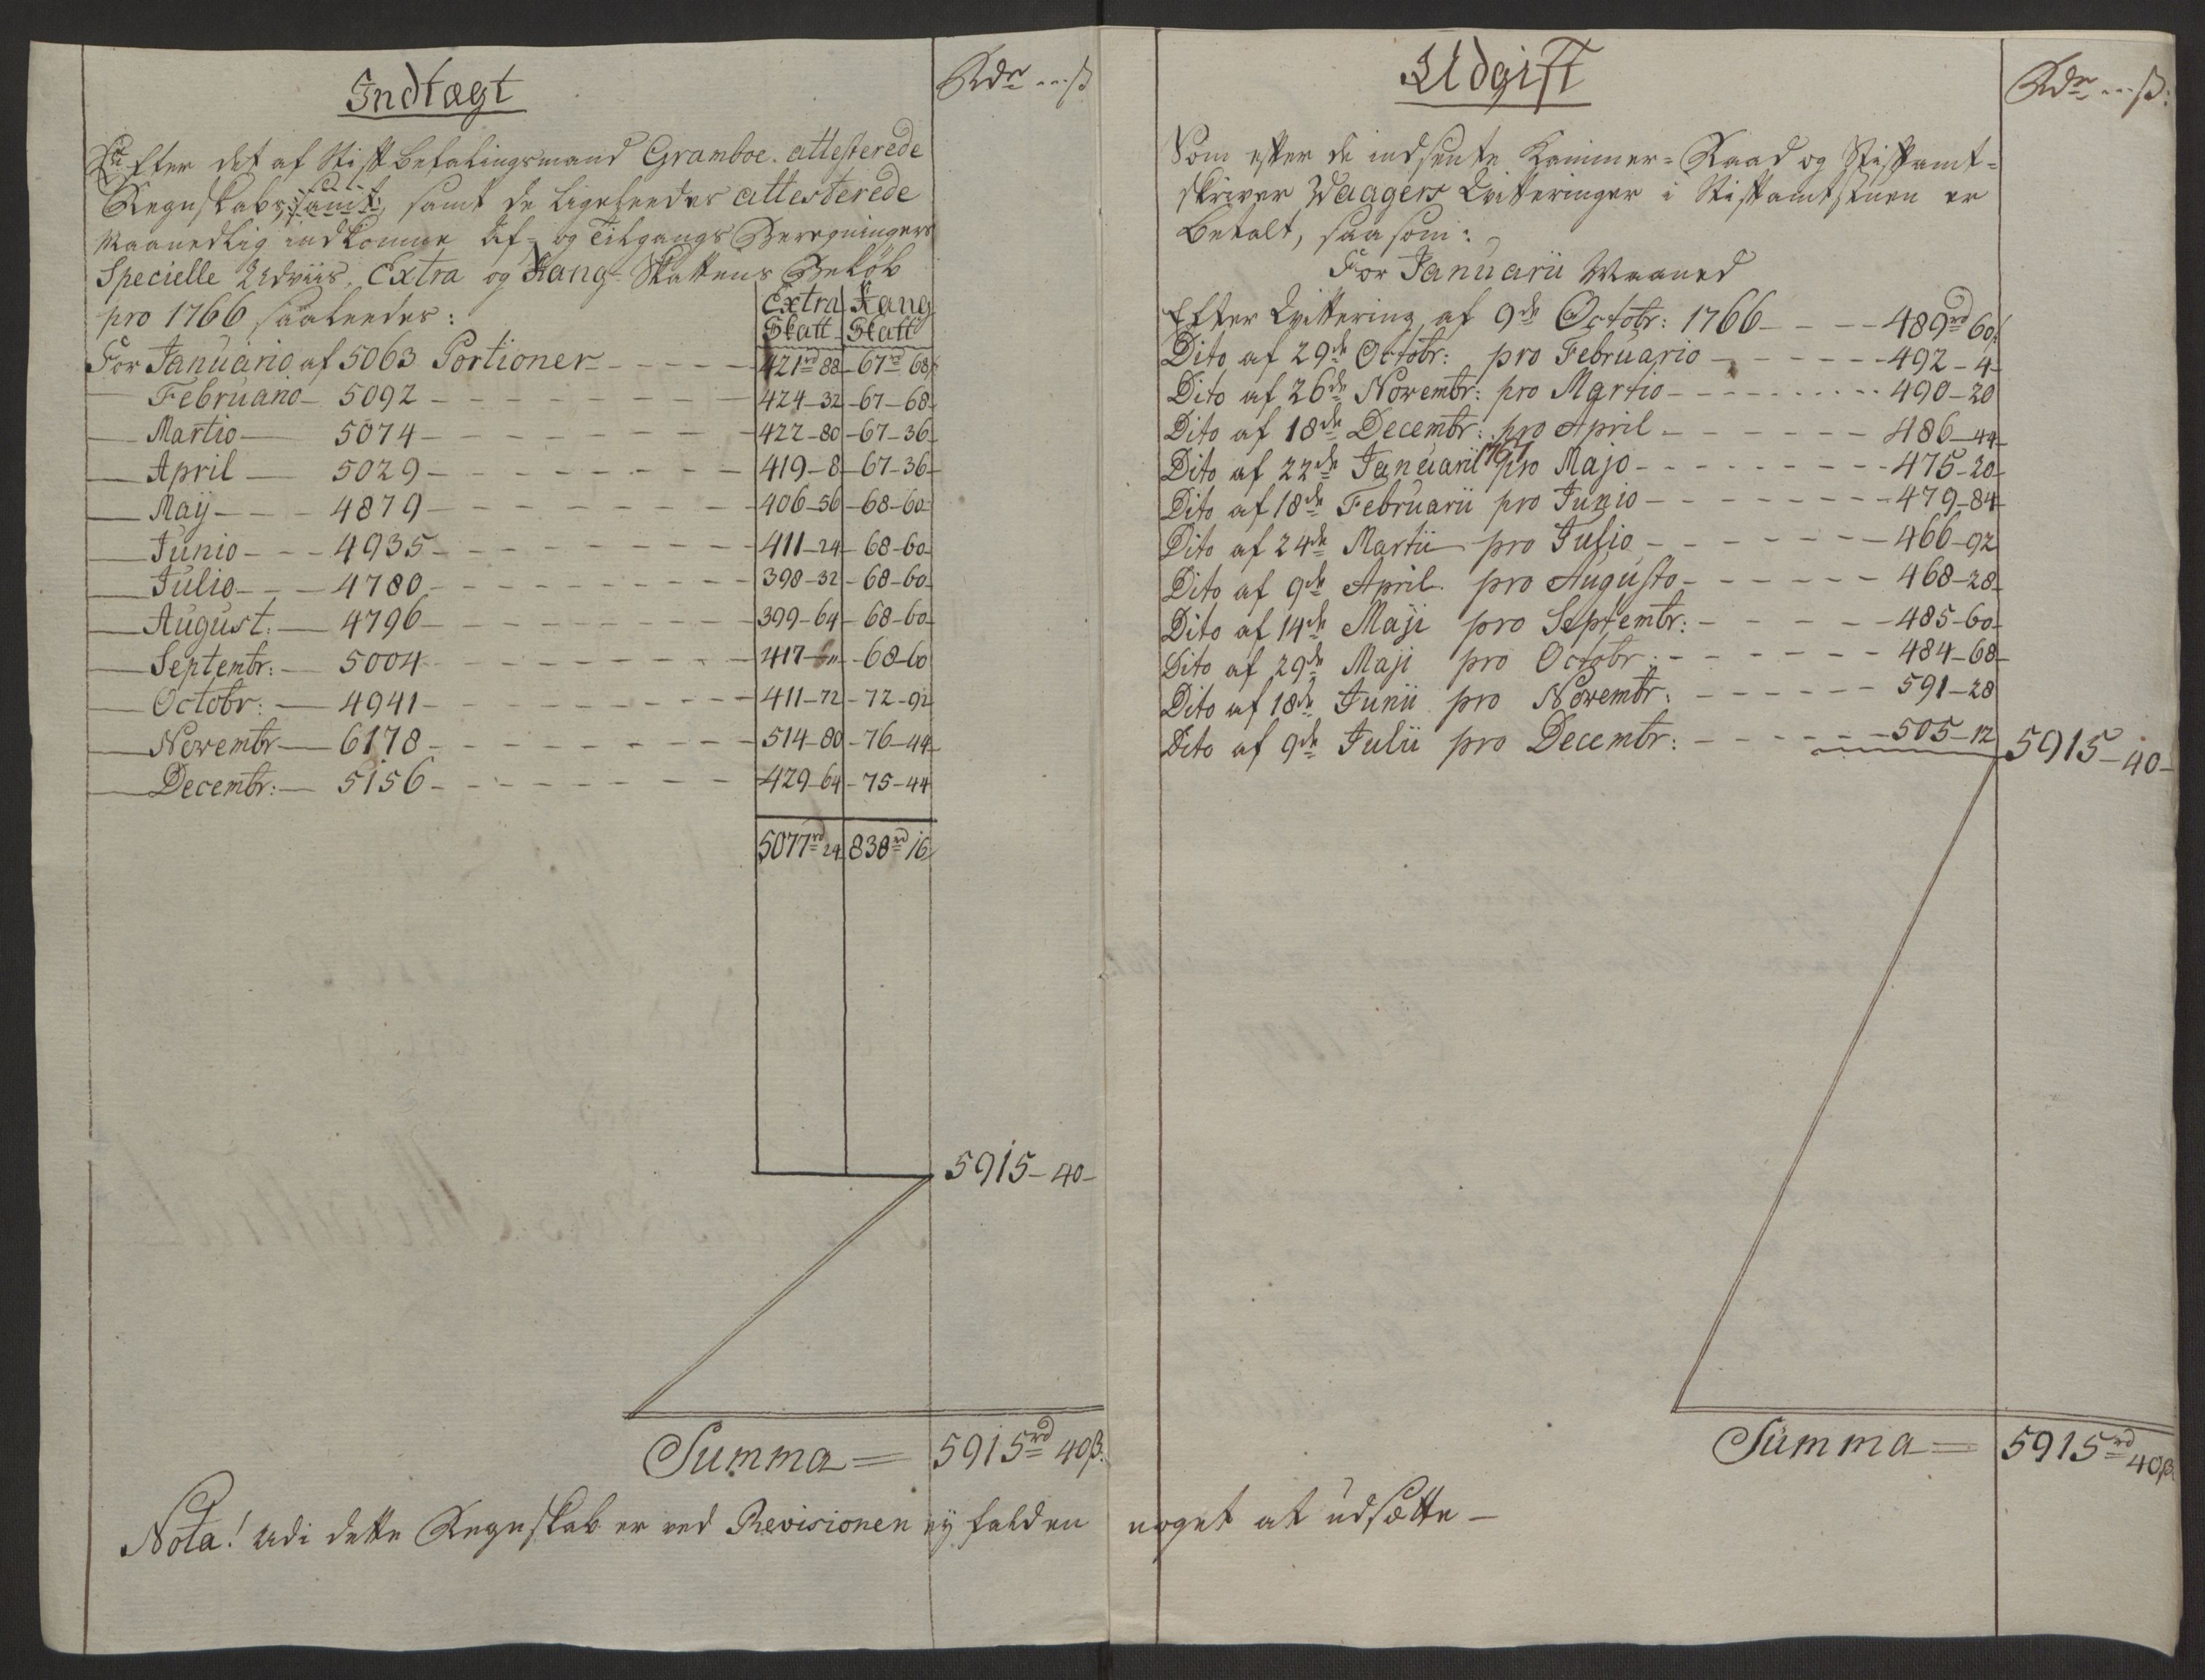 Indtægt
Rdr ... ß
Efter det af Stiftbefalingsmand Gramboe attesterede
Regnskab, samt de ligeleedes attesterede
Maanedlig indkomne Af- og Tilgangs Beregningers
Specielle Udviis, Extra og Rang-Skattens Beløb
pro 1766 saaleedes:
Extra Skatt Rang Skatt
For Januario af 5063 Portioner - - - - 421rd 88 - 67rd 68ß
Februario - 5092 - - - - 424 - 32 - 67 - 68
Martio - 5074 - - - - 422 - 80 - 67 - 36
April - 5029 - - - - 419 - 8 - 67 - 36
Maij - - - 4879 - - - - 406 - 56 - 68 - 60
Junio - - - 4935 - - - - 411 - 24 - 68 - 60
Julio - - - 4780 - - - - 398 - 32 - 68 - 60
August: - 4796 - - - - 399 - 64 - 68 - 60
Septembr: - 5004 - - - - 417 - - 68 - 60
Octobr: - 4941 - - - - 411 - 72 - 72 - 92
Novembr - 6178 - - - - 514 - 80 - 76 - 44
Decembr: - 5156 - - - - 429 - 64 - 75 - 44
5077rd 24 838rd 16
5915 - 40 -
Summa = 5915rd 40ß.
Nota! Udi dette Regnskab er ved Revisionen ej falden noget at udsætte -
Udgift
Rdr ... ß:
Som efter de indsente Kammer-Raad og Stiftamt-
skriver Waagers Qvitteringer i Stiftamtstuen er
Betalt, saasom:
For Januarii Maaned
Efter Qvittering af 9de Octobr: 1766 - - - 489rd 60ß
Dito af 29de Octobr: pro Februario - - - - 492 - 4 -
Dito af 26de Novembr: pro Martio - - - - 490 - 20
Dito af 18de Decembr: pro April - - - - 486 - 44
Dito af 22de Januarii 1767 pro Majo - - - - 475 - 20
Dito af 18de Februarii pro Junio - - - - 479 - 84
Dito af 24de Martii pro Julio - - - - 466 - 92
Dito af 9de April. pro Augusto - - - - 468 - 28
Dito af 14de Maji pro Septembr: - - - - 485 - 60
Dito af 29de Maji pro Octobr: - - - - 484 - 68
Dito af 18de Junii pro Novembr: - - - - 591 - 28
Dito af 9de Julii pro Decembr: - - - - 505 - 12
5915 - 40 -
Summa = 5915rd 40ß